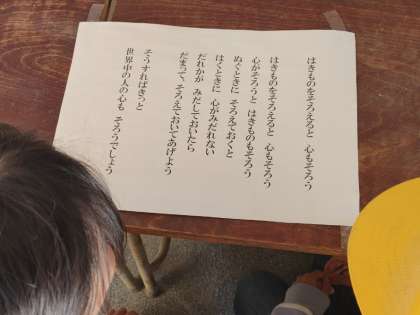 はきものをそろえると 心もそろう
はきものをそろえると 心もそろう
心がそろうと はきものもそろう
ぬぐときに そろえておくと
はくときに 心がみだれない
だれかが みだしておいたら
だまって、そろえておいてあげよう
そうすればきっと
世界中の人の心も そろうでしょう